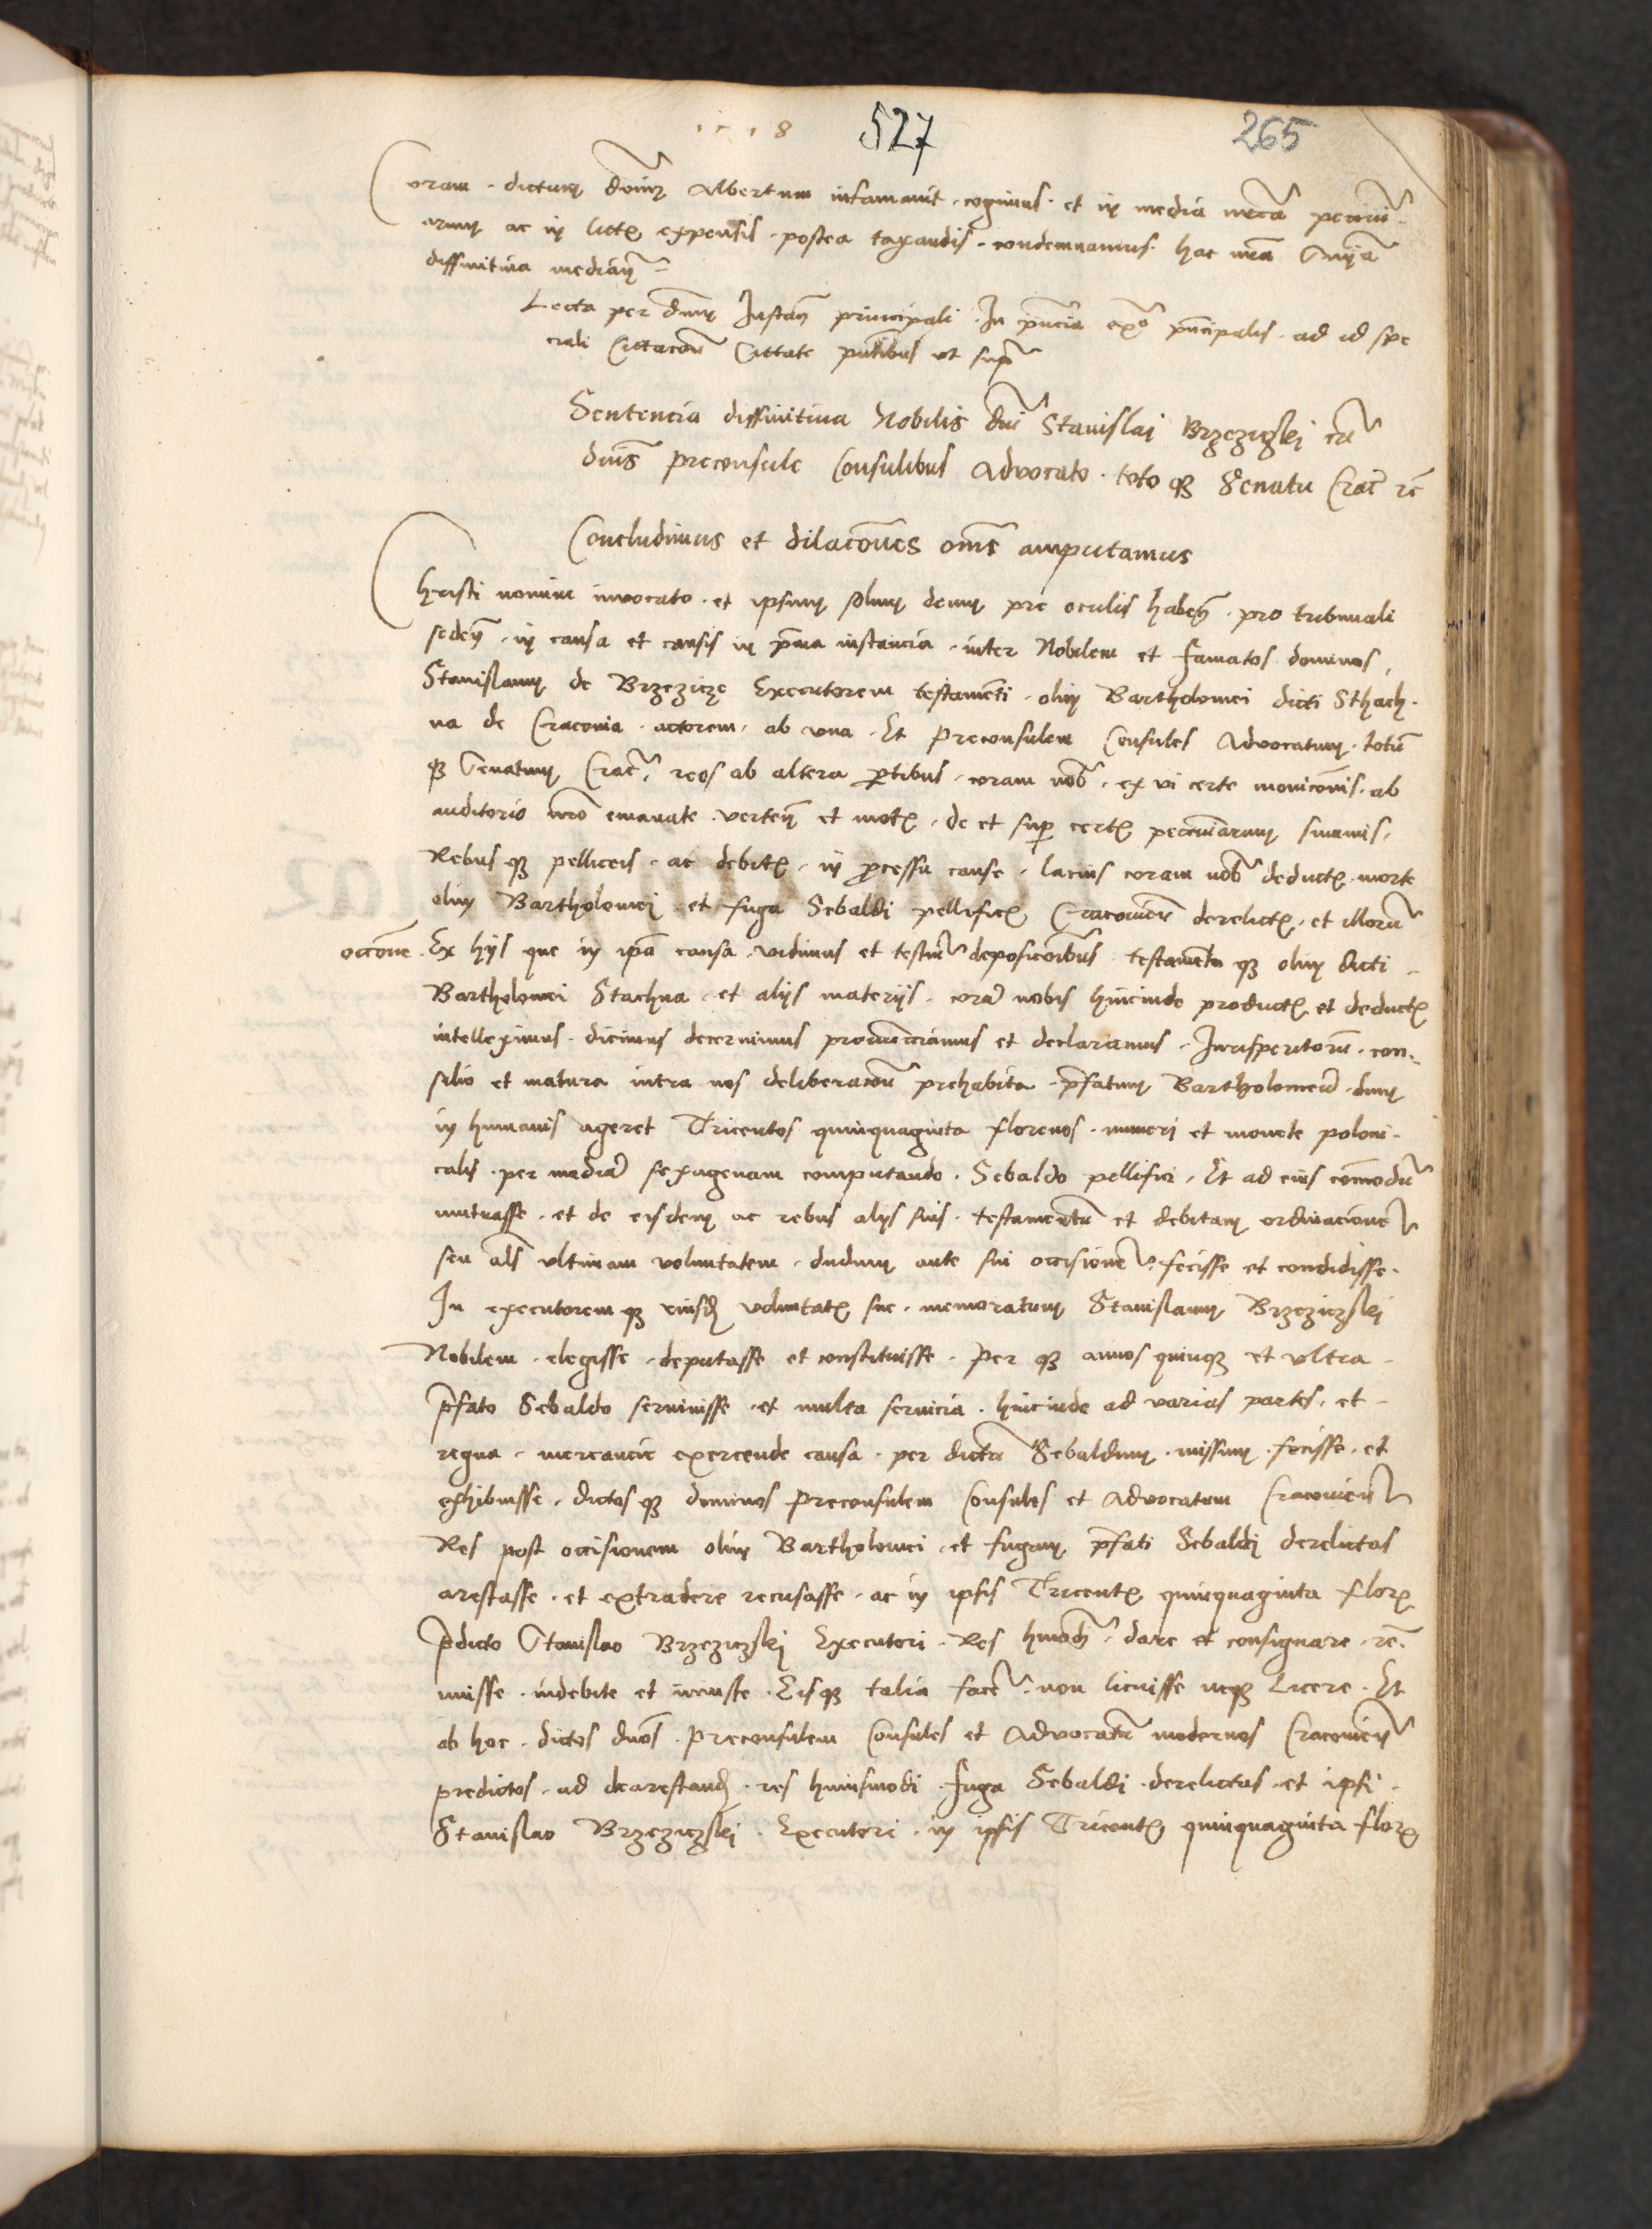 1518 527 265
Coram dictum dominum Albertum infamavit cogimus et in media marca pecuni
arum ac in litis expensis postea taxandis condemnamus hac nostra Sententia
diffinitiva mediante
Lecta per dominum Instante principali In presentia ex° principalis ad id spe
ciali Citacione Citate presentibus ut supra
Sentencia diffinitiva Nobilis domini Stanislai Brzeziczski contra
dominos preconsule Consulibus Advocato totoque Senatu Crac. etc
Concludimus et dilaciones omnes amputamus
Christi nomine invocato et ipsum solum deum pre oculis habentes pro tribunali
sedentes in causa et causis in prima instancia inter Nobilem et famatos dominos
Stanislaum de Brzezicze Executorem testamenti olim Bartholomei dicti Sthach
na de Cracovia actorem ab una Et Preconsulem Consules Advocatum totum
que Senatum Crac. reos ab altera partibus coram nobis ex vi certe monicionis ab
auditorio nostro emanate verten et motis de et super certis pecuniarum summis
Rebusque pelliceis ac debitis in processu cause lacius coram nobis deductis morte
olim Bartholomei et fuga Sebaldi pellificis Cracoviensis derelictis et illorum
occasione Ex hys que in ipsa causa vidimus et testium deposicionibus testamentoque olim dicti
Bartholomei Stachna et alys materys coram nobis hincinde productis et deductis
intelleximus dicimus decernimus pronunciamus et declaramus Iurisperitorum con
silio et matura intra nos deliberacione prehabita prefatum Bartholomeum dum
in humanis ageret Tricentos quinquaginta florenos numeri et monete poloni
calis per mediam sexagenam computando Sebaldo pellifici Et ad eius comodum
mutuasse et de eisdem ac rebus alys suis testamentum et debitam ordinacionem
seu alias ultimam voluntatem dudum ante sui occisionem fecisse et condidisse
In executoremque eiusdem voluntatis sue memoratum Stanislaum Brzeziczski
Nobilem elegisse deputasse et constituisse Per que annos quinque et ultra
prefato Sebaldo servivisse et multa servicia hincinde ad varias partes et
regna mercancie exercende causa per dictum Sebaldum missum fecisse et
exhibuisse dictosque dominos Preconsulem Consules et Advocatum Cracovien
Res post occisionem olim Bartholomei et fugam prefati Sebaldi derelictas
arestasse et extradere recusasse ac in ipsis Tricentis quinquaginta floris
predicto Stanislao Brzeziczski Executori Res huiusmodi dare et consignare re
nuisse indebite et iniuste Eisque talia facere non licuisse neque Licere Et
ab hoc dictos dominos Preconsulem Consules et Advocatum modernos Cracovien
predictos ad dearestandum res huiusmodi fuga Sebaldi derelictas et ipsi
Stanislao Brzeziczski Executori in ipsis Tricentis quinquaginta floris